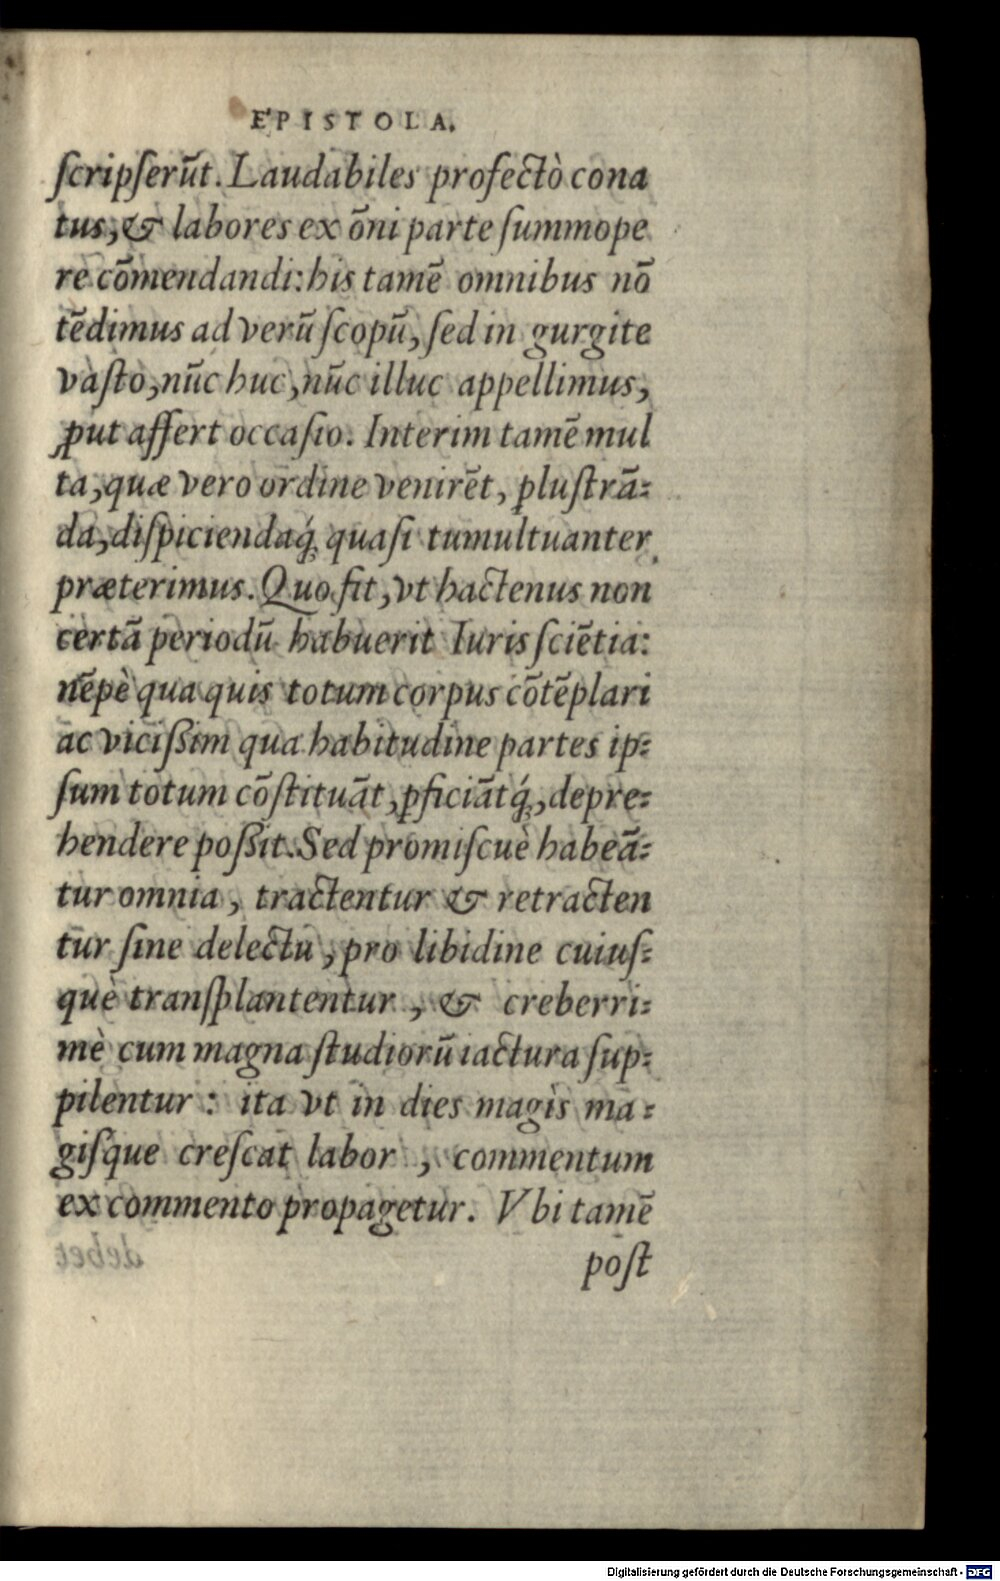 EPISTOLA.
ſcripſerūt. Laudabiles profectò cona
tus, & labores ex ōni parte ſummope
re cōmendandi: his tamē omnibus nō
tēdimus ad verū ſcopū, ſed in gurgite
vaſto, nūc huc, nūc illuc appellimus,
ꝓut affert occaſio. Interim tamē mul
ta, quæ vero ordine venirēt, ꝑluſtrā⸗
da, diſpiciendaq́; quaſi tumultuanter
præterimus. Quo fit, vt hactenus non
certā periodū habuerit Iuris ſciētia:
nēpè qua quis totum corpus cōtēplari
ac viciſsim qua habitudine partes ip⸗
ſum totum cōſtituāt, ꝑficiātq́;, depre⸗
hendere poſsit. Sed promiſcuè habeā⸗
tur omnia, tractentur & retracten
tur ſine delectu, pro libidine cuiuſ⸗
què tranſplantentur, & creberri⸗
mè cum magna ſtudiorū iactura ſup⸗
pilentur: ita vt in dies magis ma⸗
giſque creſcat labor, commentum
ex commento propagetur. Vbi tamē
poſt
Digitalisierung gefördert durch die Deutsche Forschungsgemeinschaft - DFG